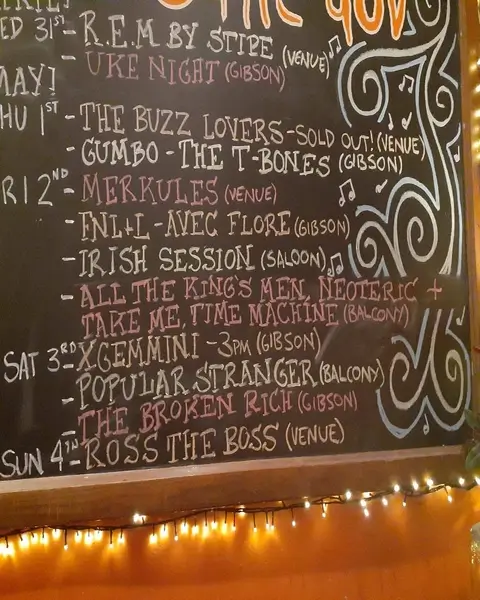 THE GOV
ED 31ST - R.E.M BY STIPE (VENUE)
- UKE NIGHT (GIBSON)
MAY!
HU 1ST - THE BUZZ LOVERS - SOLD OUT! (VENUE)
- GUMBO - THE T-BONES (GIBSON)
RI 2ND - MERKULES (VENUE)
- FNL+L - AVEC FLORE (GIBSON)
- IRISH SESSION (SALOON)
- ALL THE KING'S MEN, NEOTERIC +
TAKE ME, TIME MACHINE (BALCONY)
SAT 3RD - XGEMMINI - 3PM (GIBSON)
- POPULAR STRANGER (BALCONY)
- THE BROKEN RICH (GIBSON)
SUN 4TH - ROSS THE BOSS (VENUE)